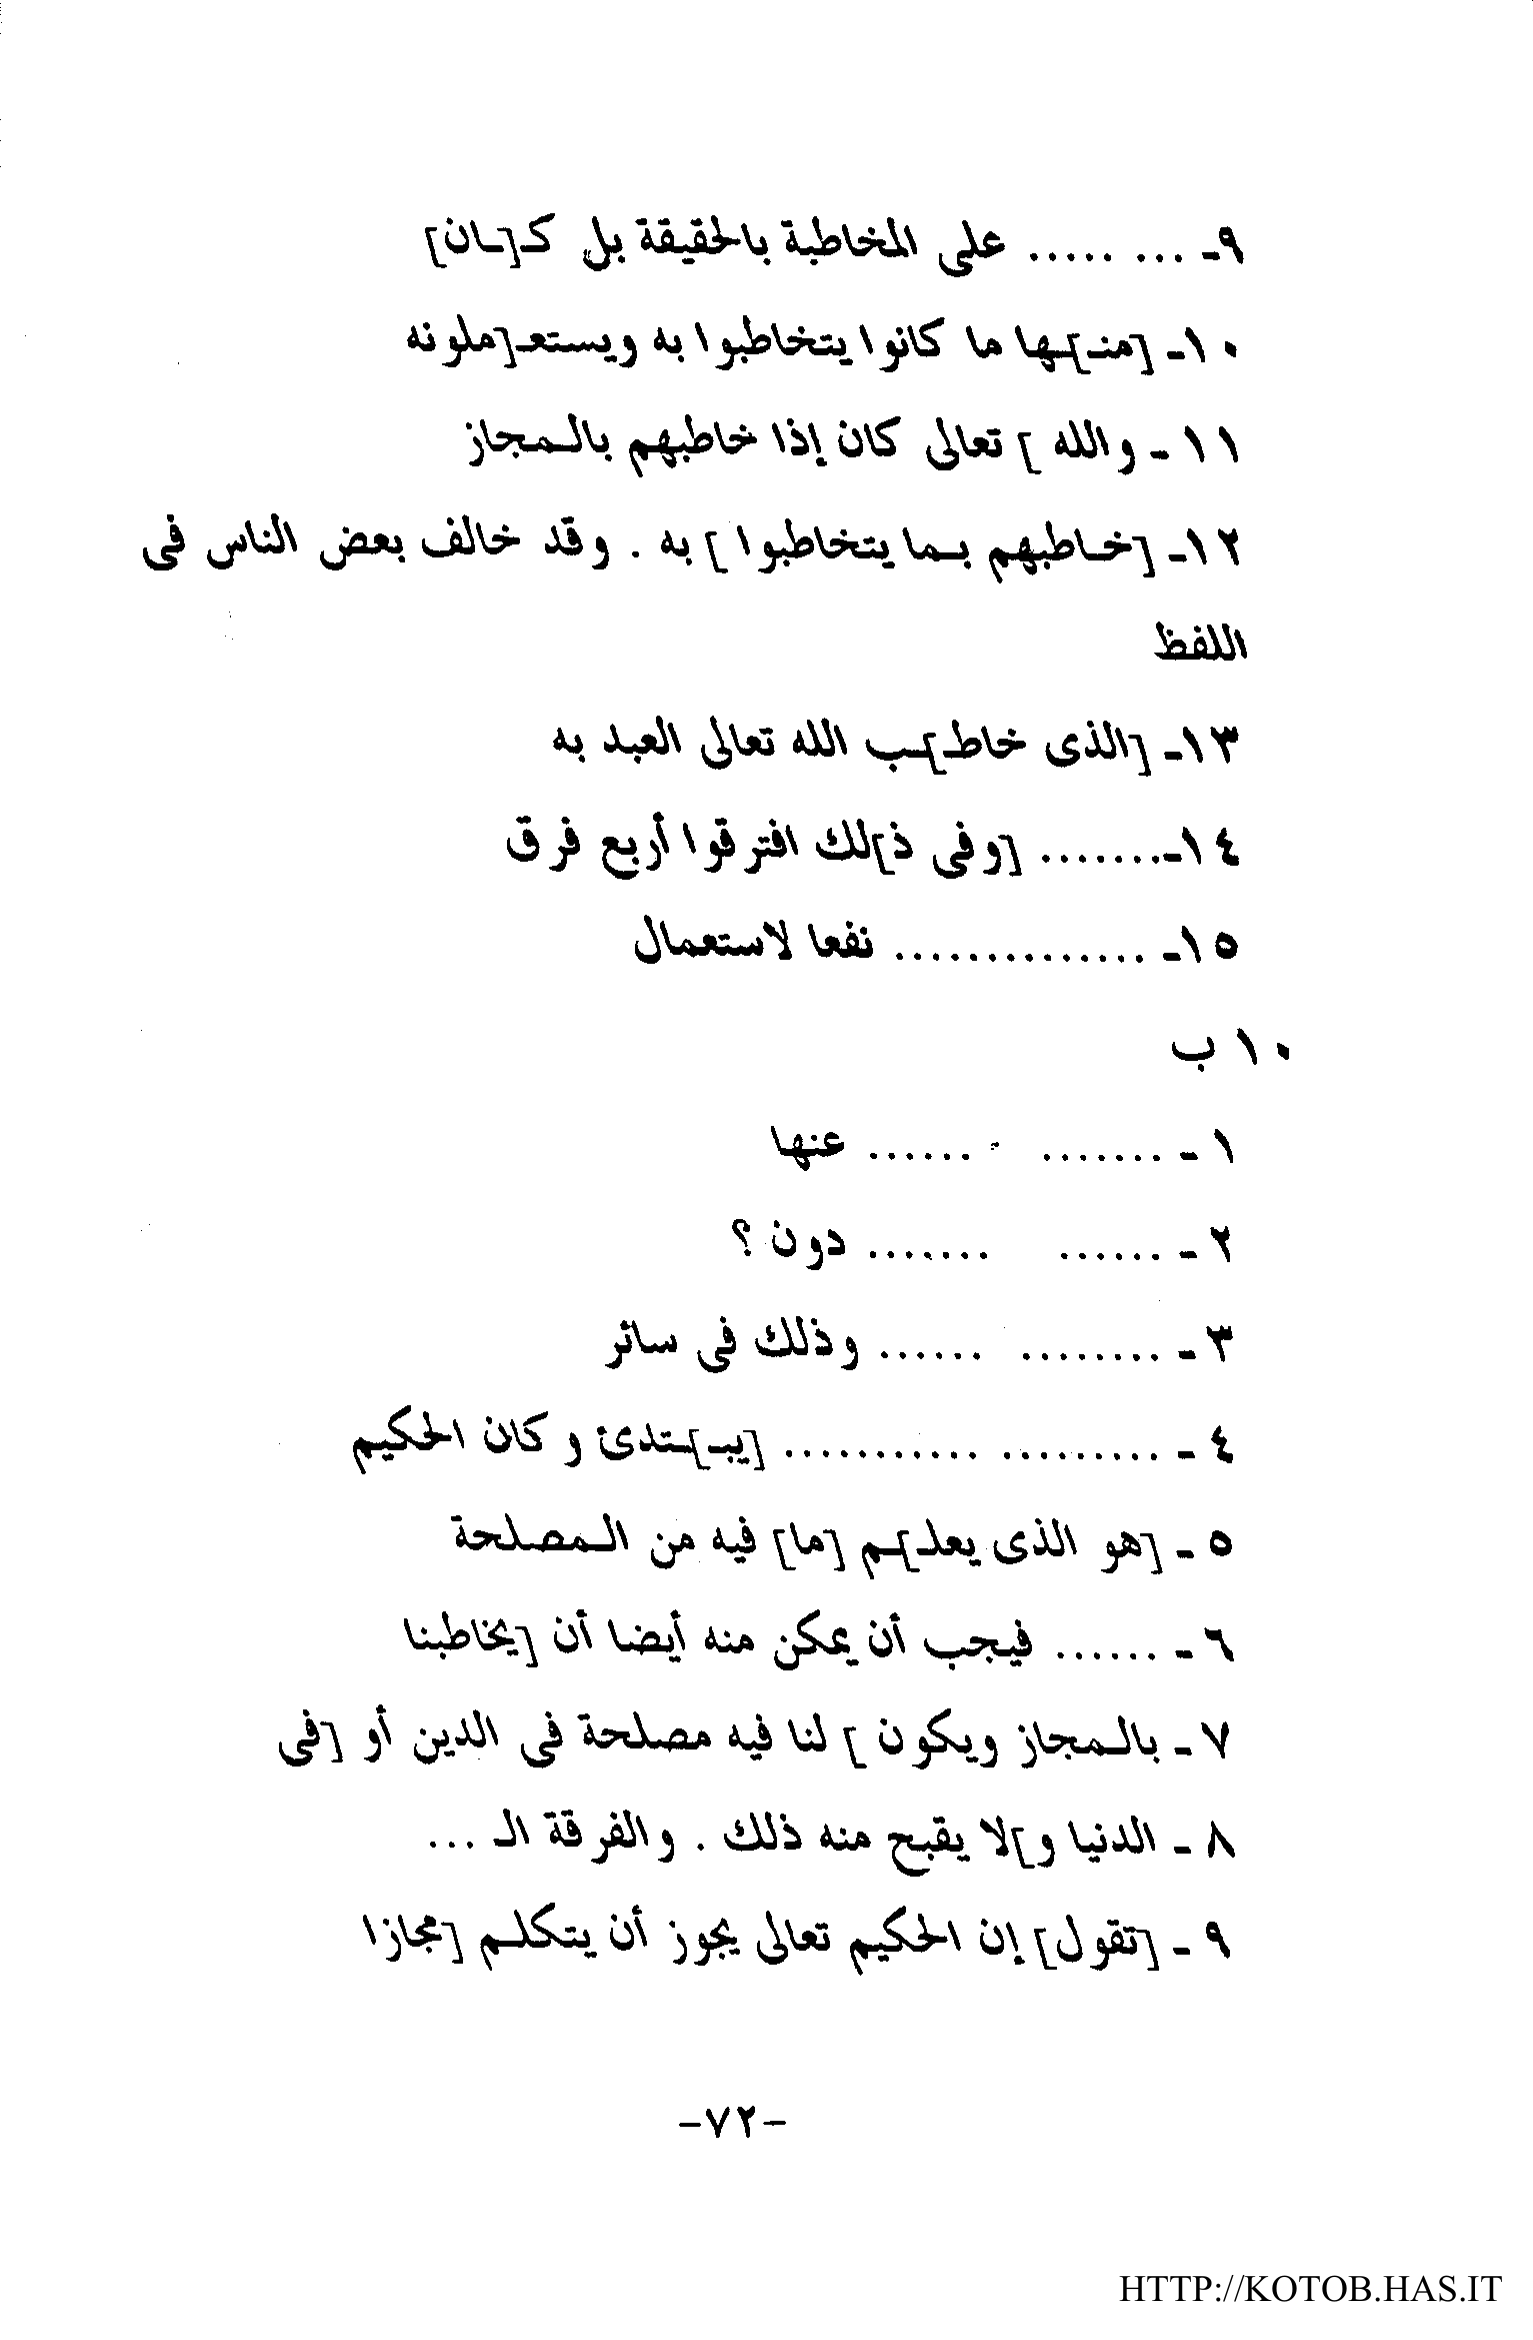 ٩- ... ..... على المخاطبة بالحقيقة بل كـ[ـان]
١٠- [منـ]ـها ما كانوا يتخاطبوا به ويستعـ[ملونه
١١ - والله ] تعالى كان إذا خاطبهم بالـمجاز
١٢- [خـاطبهم بـما يتخاطبوا ] به . وقد خالف بعض الناس فى
اللفظ
١٣- [الذى خاطـ]ـب الله تعالى العبد به
١٤- ....... [وفى ذ]لك افترقوا أربع فرق
١٥- .............. نفعا لاستعمال
١٠ ب
١ - ....... ...... عنها
٢ - ...... ....... دون ؟
٣ - ........ ...... وذلك فى سائر
٤ - ......... ........... [يبـ]ـتدئ و كان الحكيم
٥ - [هو الذى يعلـ]ـم [ما] فيه من الـمصلحة
٦ - ...... فيجب أن يمكن منه أيضا أن [يخاطبنا
٧ - بالـمجاز ويكون ] لنا فيه مصلحة فى الدين أو [فى
٨ - الدنيا و]لا يقبح منه ذلك . والفرقة الـ ...
٩ - [تقول] إن الحكيم تعالى يجوز أن يتكلـم [مجازا
-٧٢-
HTTP://KOTOB.HAS.IT